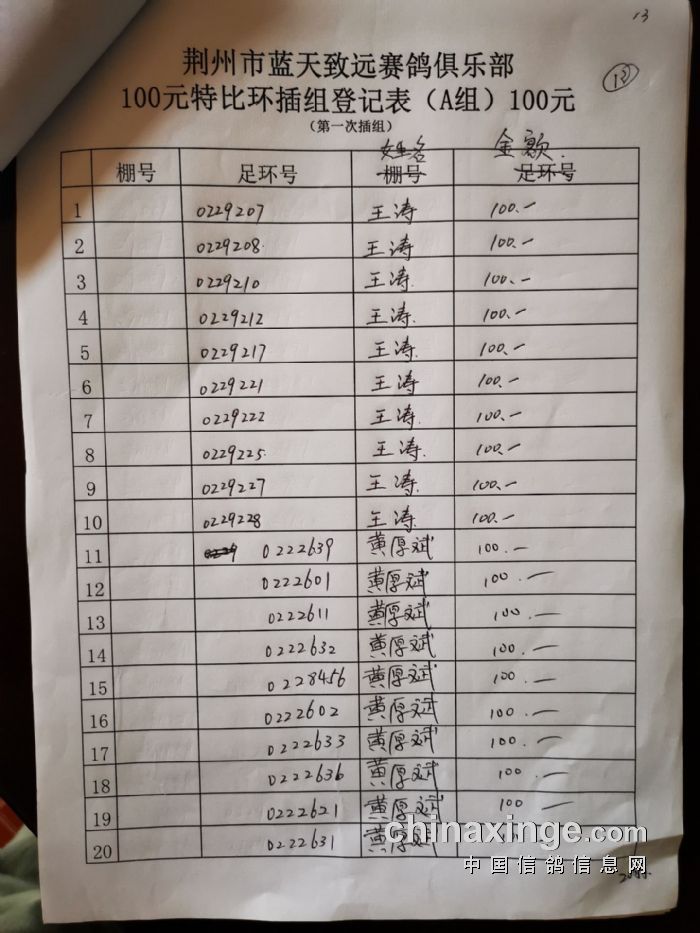 13
荆州市蓝天致远赛鸽俱乐部
13
100元特比环插组登记表（A组）100元
（第一次插组）
姓名 金额.
棚号 足环号 棚号 足环号
1 0229207 王涛 100.-
2 0229208. 王涛 100.-
3 0229210 王涛 100.-
4 0229212 王涛. 100.-
5 0229217 王涛. 100.-
6 0229221 王涛 100.-
7 0229222 王涛. 100.-
8 0229225. 王涛. 100.-
9 0229227 王涛. 100.-
10 0229228 王涛. 100.-
11 0229 0222639 黄厚斌 100.-
12 0222601 黄厚斌 100.—
13 0222611 黄厚斌 100.—
14 0222632 黄厚斌 100.—
15 0228456 黄厚斌 100.—
16 0222602 黄厚斌 100.—
17 0222633 黄厚斌 100.—
18 0222636 黄厚斌 100.—
19 0222621 黄厚斌 100 —
20 0222631 黄厚斌
chinaxinge.com
中国信鸽信息网